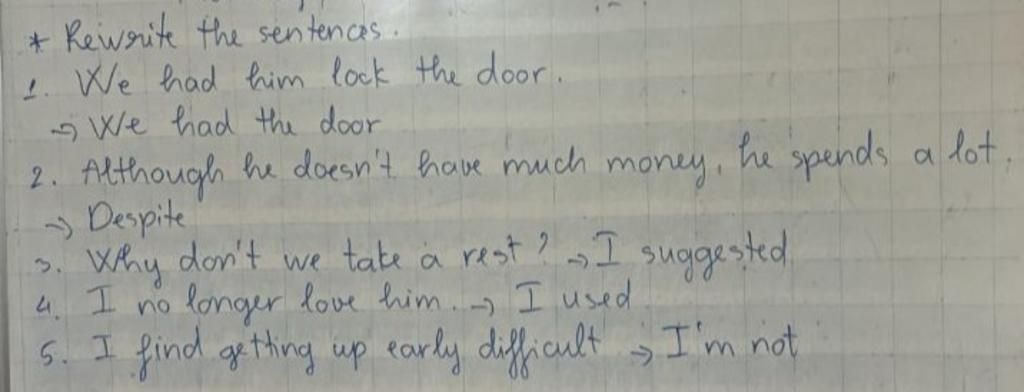 * Rewrite the sentences.
1. We had him lock the door.
→ We had the door
2. Although he doesn't have much money, he spends a lot.
→ Despite
3. Why don't we take a rest? → I suggested
4. I no longer love him. → I used
5. I find getting up early difficult → I'm not